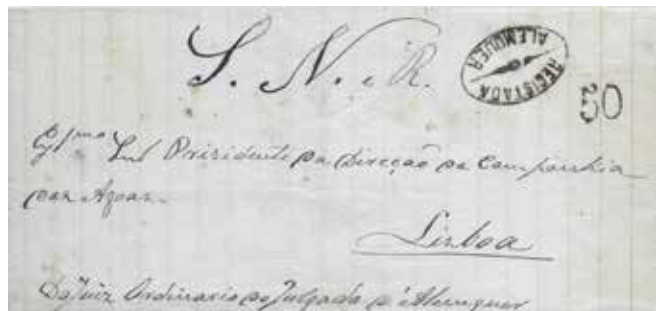 S. N. e R.
REGISTADA ALEMQUER
50
Ex.mo Snr Prizidente da Direcção da Companhia
das Agoas
Lisboa
Do Juiz Ordinario do Julgado d'Alemquer